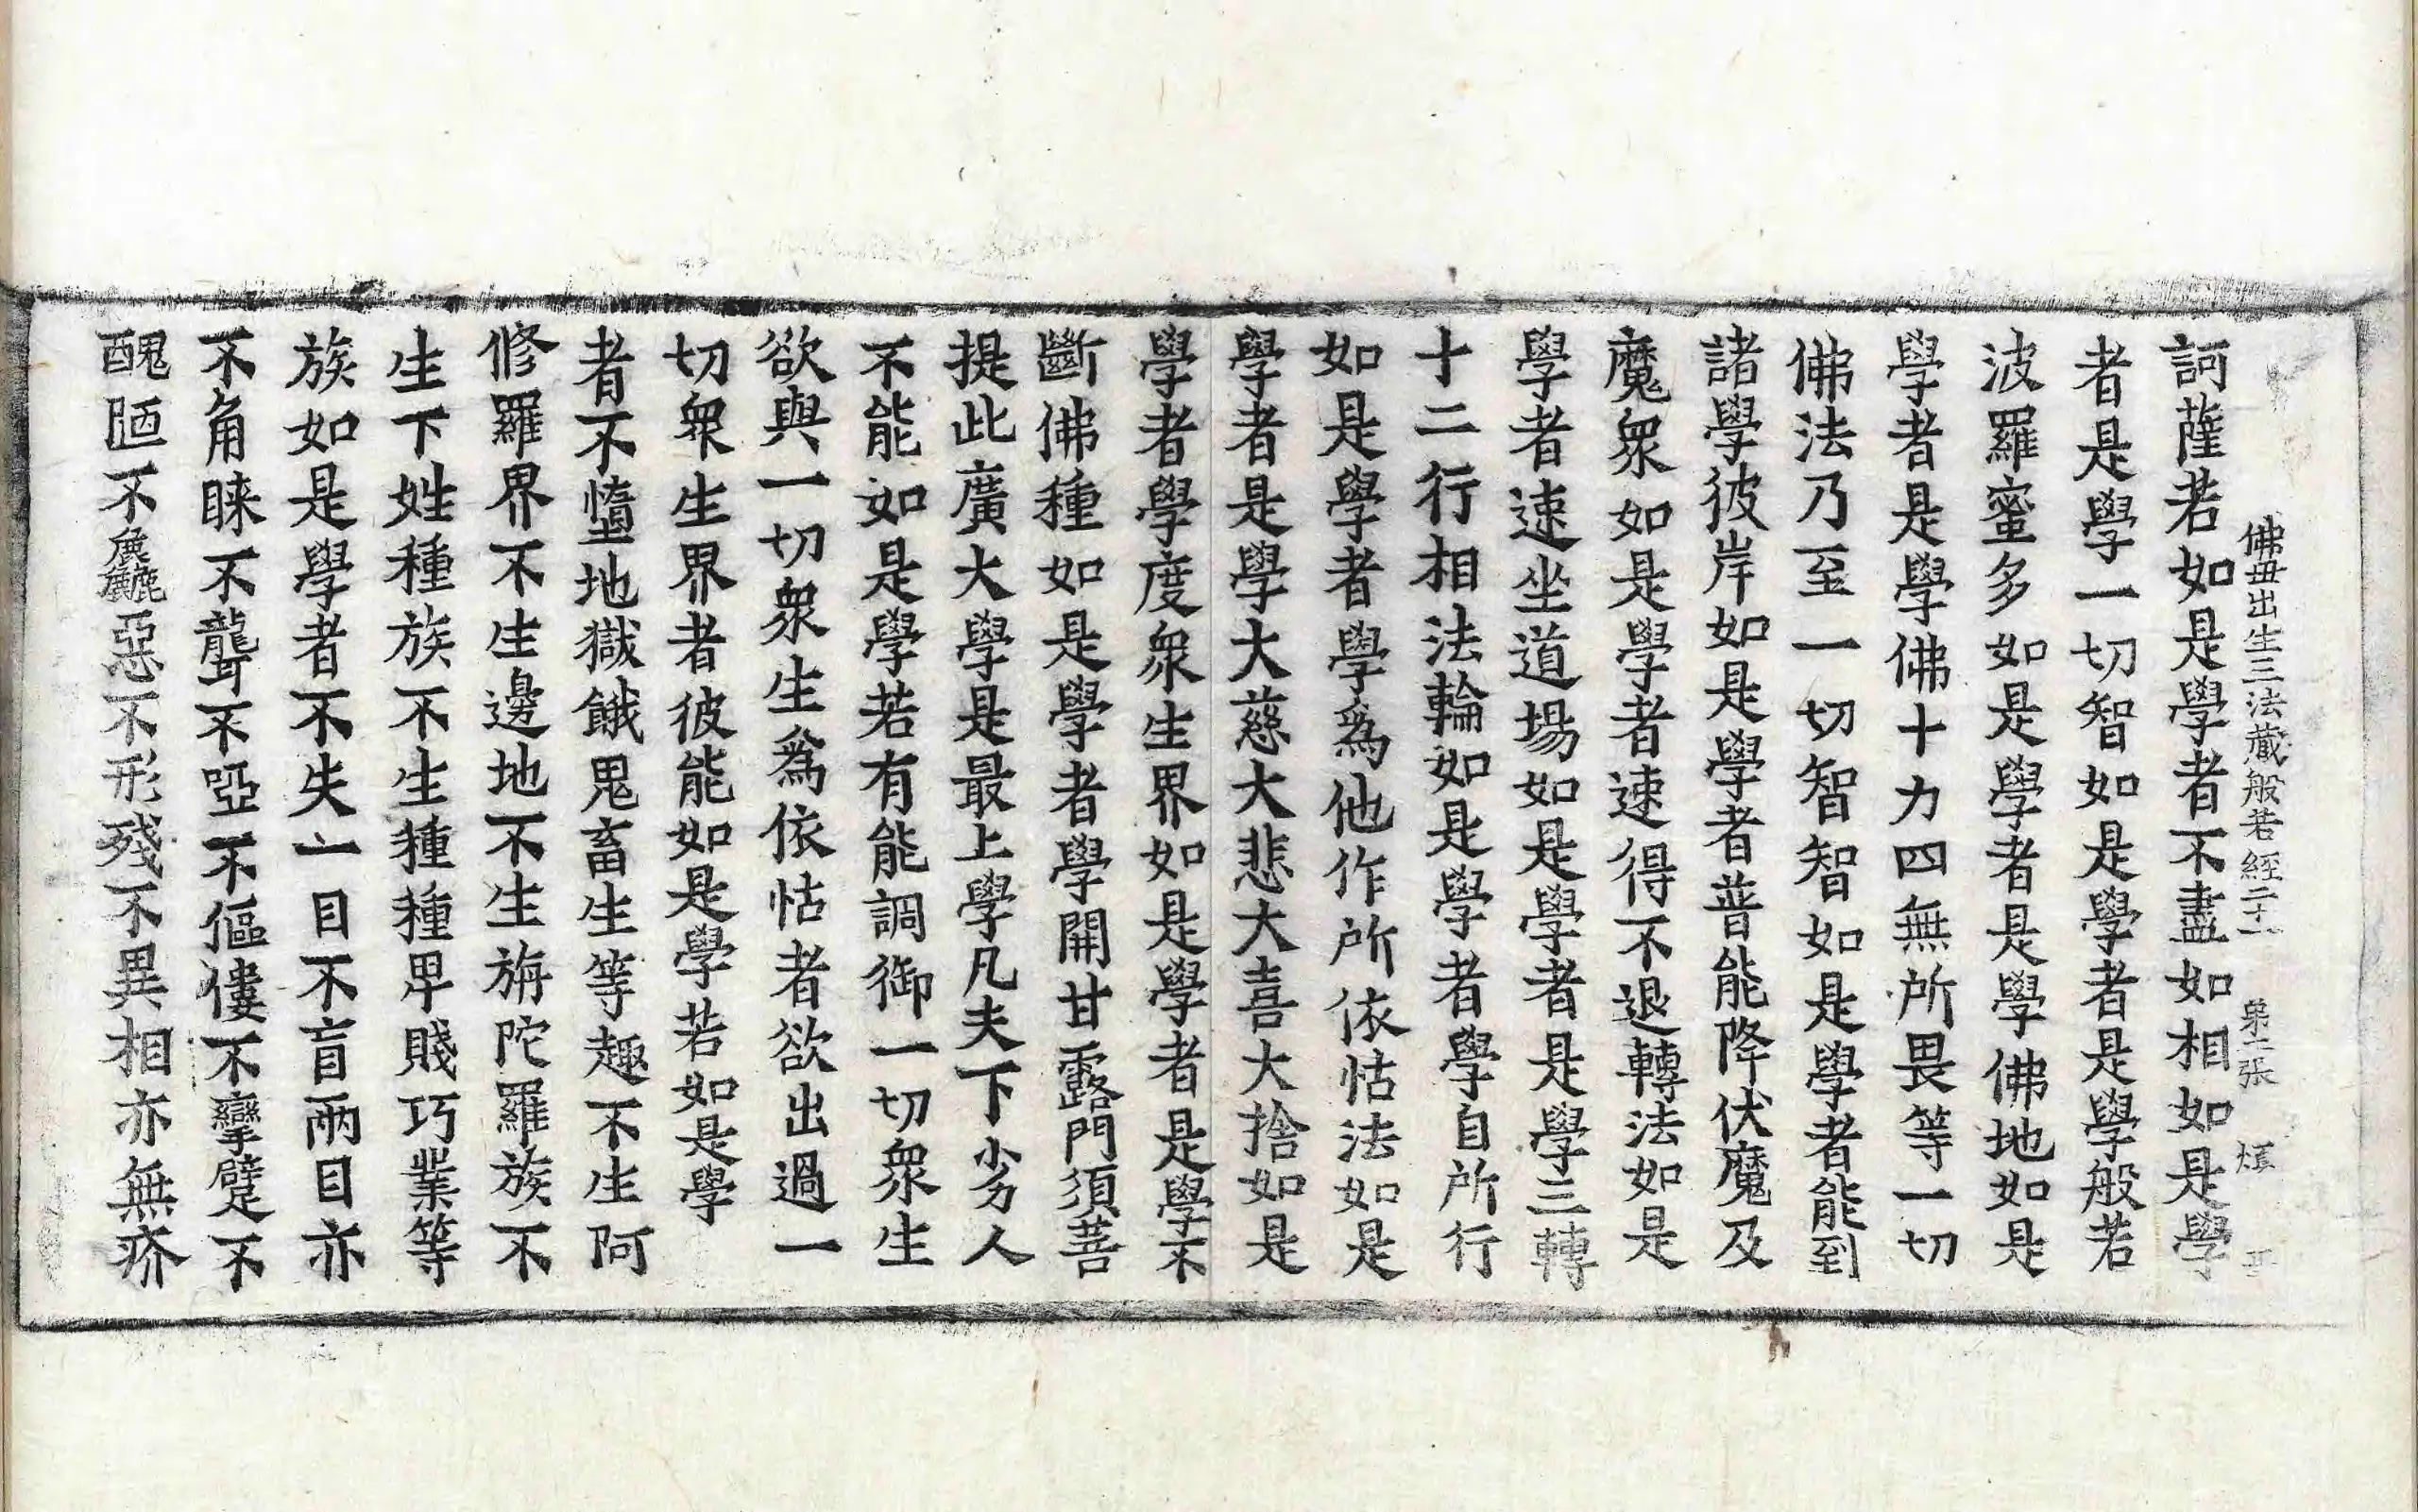 佛毋出生三法藏般若經二十一 苐二張 煩
訶薩若如是學者不盡如相如是學
者是學一切智如是學者是學般若
波羅蜜多如是學者是學佛地如是
學者是學佛十力四無所畏等一切
佛法乃至一切智智如是學者能到
諸學彼岸如是學者普能降伏魔及
魔衆如是學者速得不退轉法如是
學者速坐道場如是學者是學三轉
十二行相法輪如是學者學自所行
如是學者學爲他作所依怙法如是
學者是學大慈大悲大喜大捨如是
學者學度衆生界如是學者是學不
斷佛種如是學者學開甘露門須菩
提此廣大學是最上學凡夫下劣人
不能如是學若有能調御一切衆生
欲與一切衆生爲依怙者欲出過一
切衆生界者彼能如是學若如是學
者不墮地獄餓鬼畜生等趣不生阿
修羅界不生邊地不生旃陀羅族不
生下姓種族不生種種卑賤巧業等
族如是學者不失一目不盲兩目亦
不角睞不聾不啞不傴僂不攣躄不
醜陋不麤惡不形殘不異相亦無疥